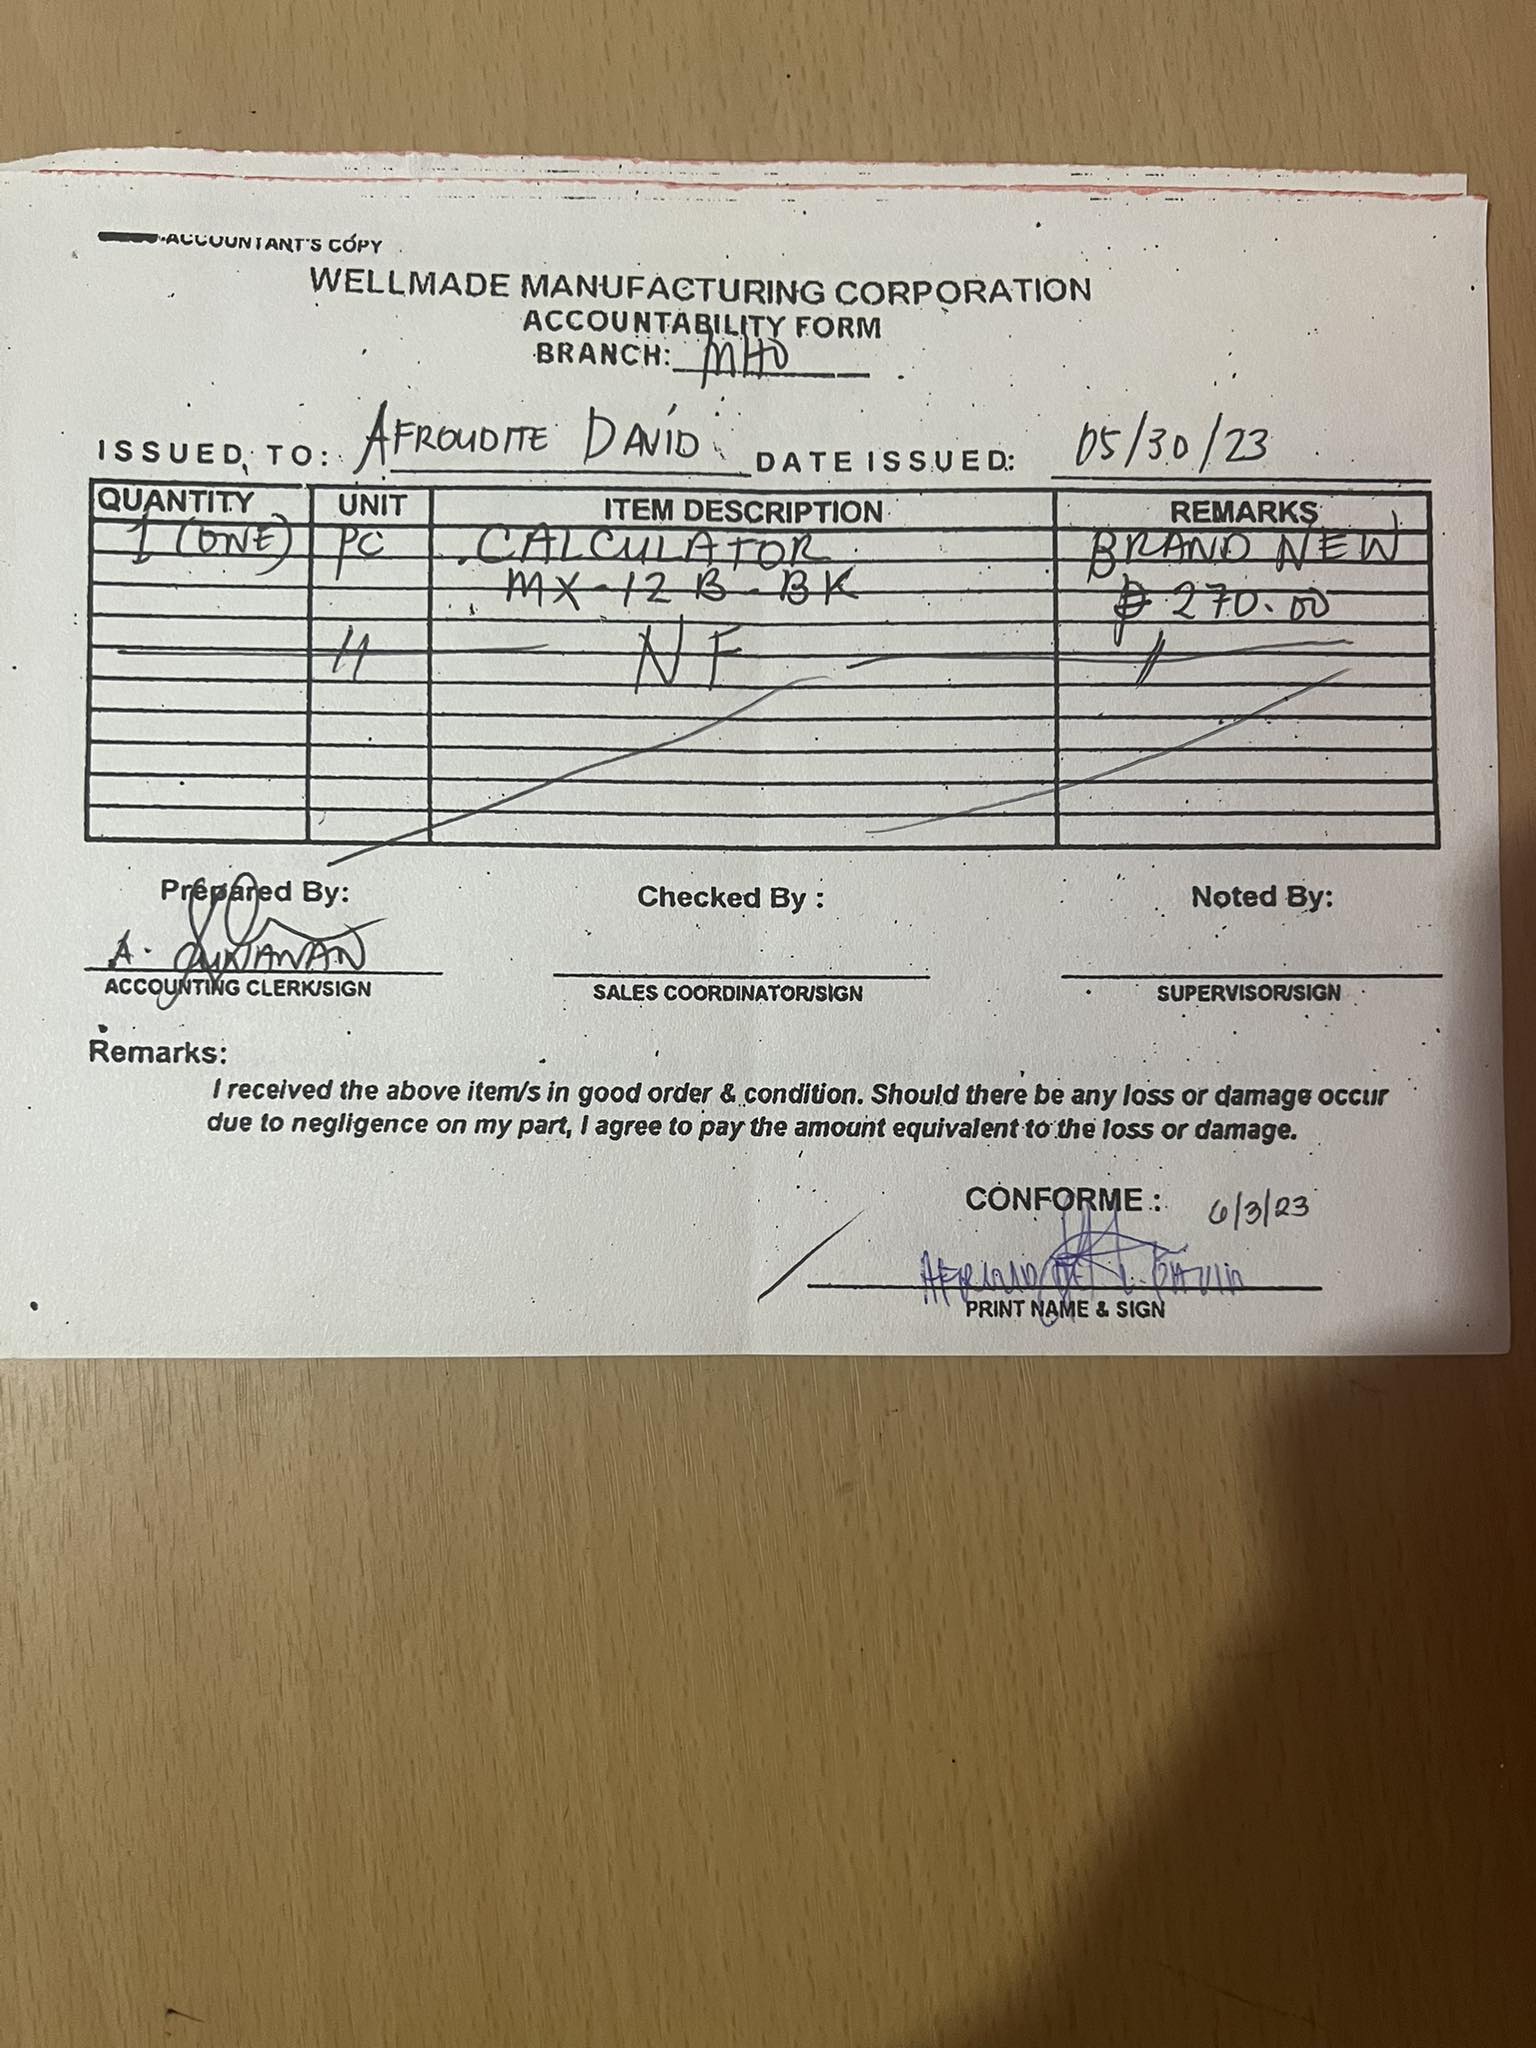 ACCOUNTANT'S COPY
WELLMADE MANUFACTURING CORPORATION
ACCOUNTABILITY FORM
BRANCH: MHO
ISSUED TO: AFROUDITE DAVID DATE ISSUED: 05/30/23
QUANTITY UNIT ITEM DESCRIPTION REMARKS
1 (ONE) PC CALCULATOR BRAND NEW
MX-12B-BK ₱ 270.00
// NF //
Prepared By: Checked By : Noted By:
A.
ACCOUNTING CLERK/SIGN SALES COORDINATOR/SIGN SUPERVISOR/SIGN
Remarks:
I received the above item/s in good order & condition. Should there be any loss or damage occur
due to negligence on my part, I agree to pay the amount equivalent to the loss or damage.
CONFORME : 6/3/23
PRINT NAME & SIGN